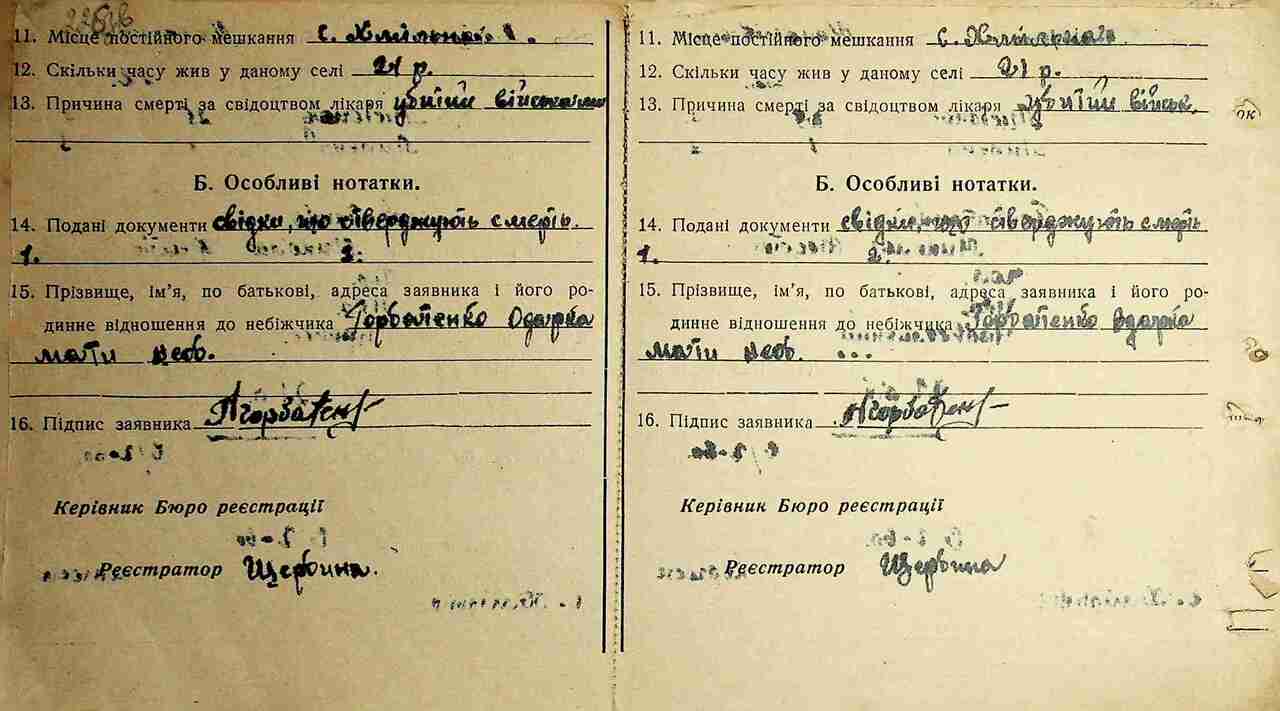 11. Місце постійного мешкання с. Хмільна
12. Скільки часу жив у даному селі 21 р.
13. Причина смерті за свідоцтвом лікаря убитий військами
Б. Особливі нотатки.
14. Подані документи свідки, що стверджують смерть.
1. 2.
15. Прізвище, ім’я, по батькові, адреса заявника і його ро-
динне відношення до небіжчика Горбатенко Одарка
мати неб.
16. Підпис заявника Горбатен
Керівник Бюро реєстрації
Реєстратор Щербина.
11. Місце постійного мешкання с.
12. Скільки часу жив у даному селі 21 р.
13. Причина смерті за свідоцтвом лікаря убитий військ.
Б. Особливі нотатки.
14. Подані документи свідки, що стверджують смерть
1. 2.
15. Прізвище, ім’я, по батькові, адреса заявника і його ро-
динне відношення до небіжчика Горбатенко Одарка
мати неб.
16. Підпис заявника Горбатен
Керівник Бюро реєстрації
Реєстратор Щербина